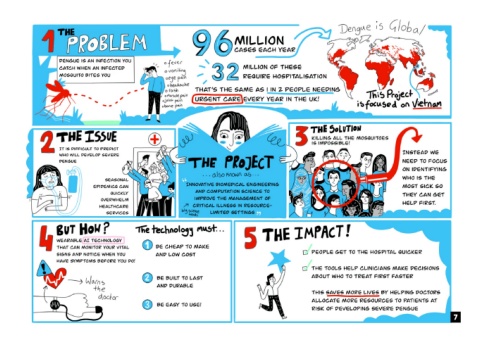 1 THE PROBLEM
DENGUE IS AN INFECTION YOU
CATCH WHEN AN INFECTED
MOSQUITO BITES YOU
fever
vomiting
96 MILLION
CASES EACH YEAR
32 MILLION OF THESE
REQUIRE HOSPITALISATION
THAT'S THE SAME AS 1 IN 2 PEOPLE NEEDING
URGENT CARE EVERY YEAR IN THE UK!
Dengue is Global
This Project
is focused on Vietnam
2 THE ISSUE
IT IS DIFFICULT TO PREDICT
WHO WILL DEVELOP SEVERE
DENGUE
SEASONAL
EPIDEMICS CAN
QUICKLY
OVERWHELM
HEALTHCARE
SERVICES
THE PROJECT
...also known as...
"INNOVATIVE BIOMEDICAL ENGINEERING
AND COMPUTATION SCIENCE TO
IMPROVE THE MANAGEMENT OF
CRITICAL ILLNESS IN RESOURCE-
LIMITED SETTINGS."
3 THE SOLUTION
KILLING ALL THE MOSQUITOES
IS IMPOSSIBLE!
INSTEAD WE
NEED TO FOCUS
ON IDENTIFYING
WHO IS THE
MOST SICK SO
THEY CAN GET
HELP FIRST.
4 BUT HOW?
WEARABLE AI TECHNOLOGY
THAT CAN MONITOR YOUR VITAL
SIGNS AND NOTICE WHEN YOU
HAVE SYMPTOMS BEFORE YOU DO!
Warns
the
doctor
The technology must...
1 BE CHEAP TO MAKE
AND LOW COST
2 BE BUILT TO LAST
AND DURABLE
3 BE EASY TO USE!
5 THE IMPACT!
PEOPLE GET TO THE HOSPITAL QUICKER
THE TOOLS HELP CLINICIANS MAKE DECISIONS
ABOUT WHO TO TREAT FIRST FASTER
THIS SAVES MORE LIVES BY HELPING DOCTORS
ALLOCATE MORE RESOURCES TO PATIENTS AT
RISK OF DEVELOPING SEVERE DENGUE
7